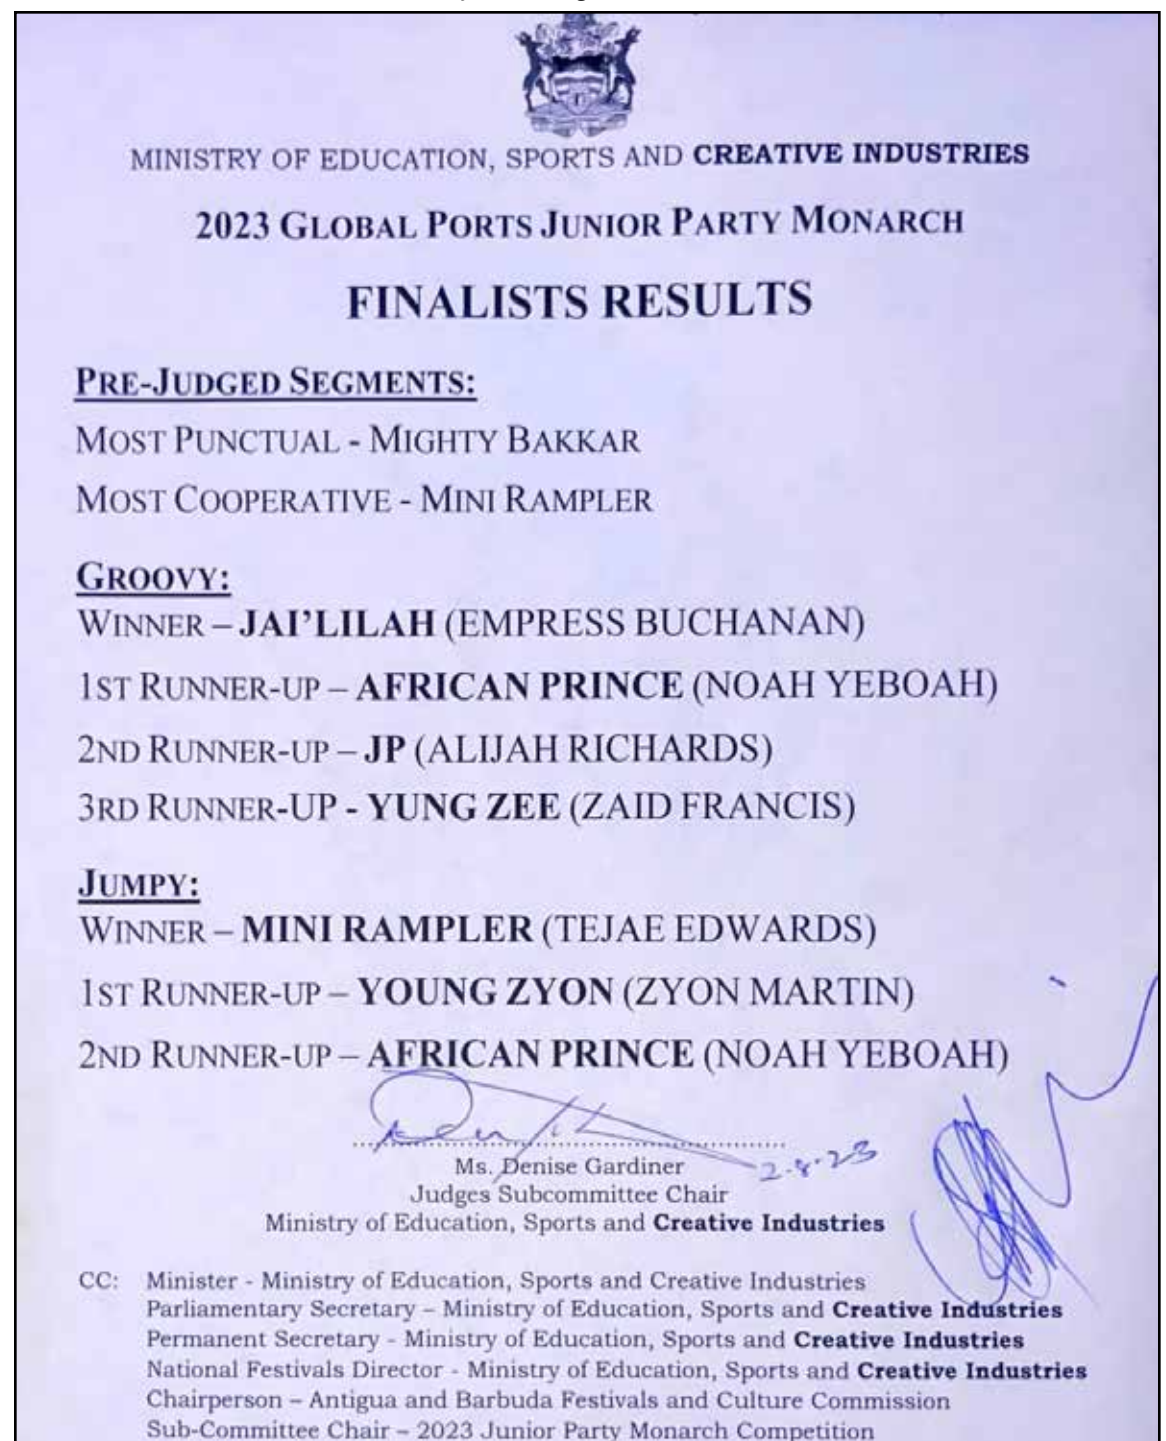 MINISTRY OF EDUCATION, SPORTS AND CREATIVE INDUSTRIES
2023 GLOBAL PORTS JUNIOR PARTY MONARCH
FINALISTS RESULTS
PRE-JUDGED SEGMENTS:
MOST PUNCTUAL - MIGHTY BAKKAR
MOST COOPERATIVE - MINI RAMPLER
GROOVY:
WINNER – JAI'LILAH (EMPRESS BUCHANAN)
1ST RUNNER-UP – AFRICAN PRINCE (NOAH YEBOAH)
2ND RUNNER-UP – JP (ALIJAH RICHARDS)
3RD RUNNER-UP - YUNG ZEE (ZAID FRANCIS)
JUMPY:
WINNER – MINI RAMPLER (TEJAE EDWARDS)
1ST RUNNER-UP – YOUNG ZYON (ZYON MARTIN)
2ND RUNNER-UP – AFRICAN PRINCE (NOAH YEBOAH)
Ms. Denise Gardiner
2-8-23
Judges Subcommittee Chair
Ministry of Education, Sports and Creative Industries
CC: Minister - Ministry of Education, Sports and Creative Industries
Parliamentary Secretary – Ministry of Education, Sports and Creative Industries
Permanent Secretary - Ministry of Education, Sports and Creative Industries
National Festivals Director - Ministry of Education, Sports and Creative Industries
Chairperson – Antigua and Barbuda Festivals and Culture Commission
Sub-Committee Chair – 2023 Junior Party Monarch Competition